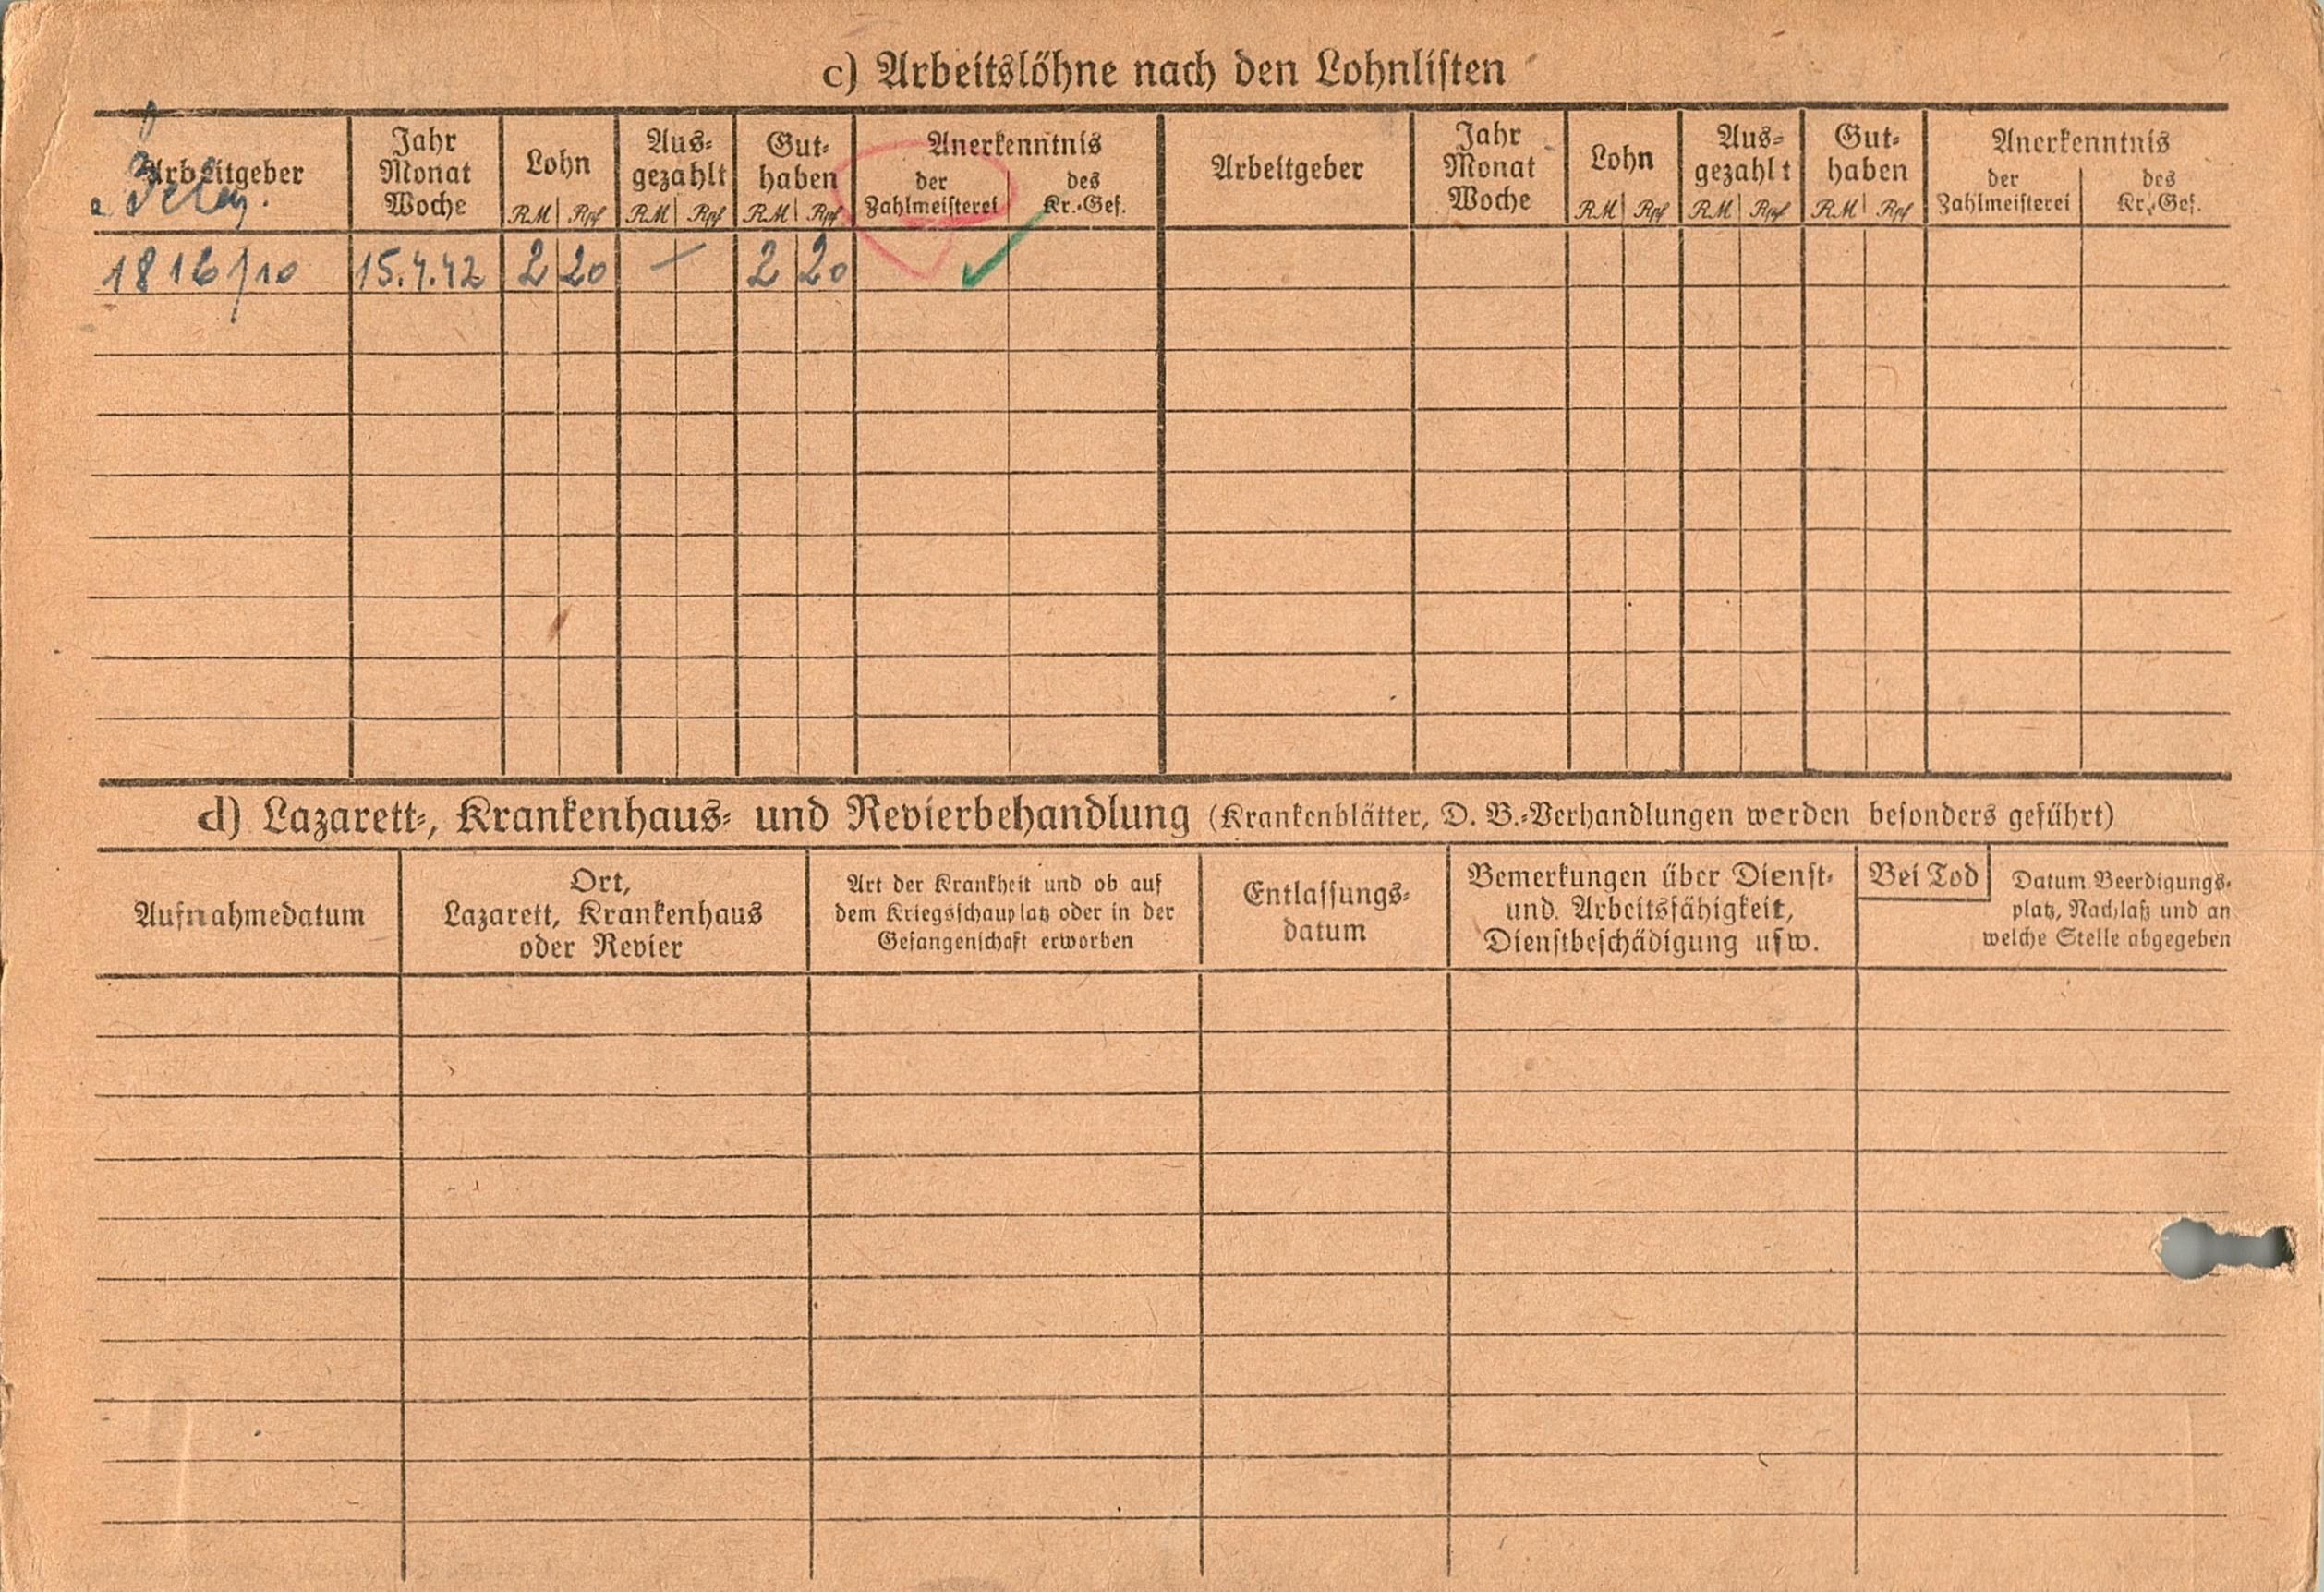 c) Arbeitslöhne nach den Lohnlisten
Arbeitgeber
Jahr
Monat
Woche
Lohn
RM Rpf
Aus-
gezahlt
RM Rpf
Gut-
haben
RM Rpf
Anerkenntnis
der
Zahlmeisterei
des
Kr.-Gef.
Arbeitgeber
Jahr
Monat
Woche
Lohn
RM Rpf
Aus-
gezahlt
RM Rpf
Gut-
haben
RM Rpf
Anerkenntnis
der
Zahlmeisterei
des
Kr.-Gef.
1816/10 15.4.42 2 20 — 2 20
d) Lazarett-, Krankenhaus- und Revierbehandlung (Krankenblätter, D. B.-Verhandlungen werden besonders geführt)
Aufnahmedatum
Ort,
Lazarett, Krankenhaus
oder Revier
Art der Krankheit und ob auf
dem Kriegsschauplatz oder in der
Gefangenschaft erworben
Entlassungs-
datum
Bemerkungen über Dienst-
und Arbeitsfähigkeit,
Dienstbeschädigung usw.
Bei Tod
Datum Beerdigungs-
platz, Nachlaß und an
welche Stelle abgegeben